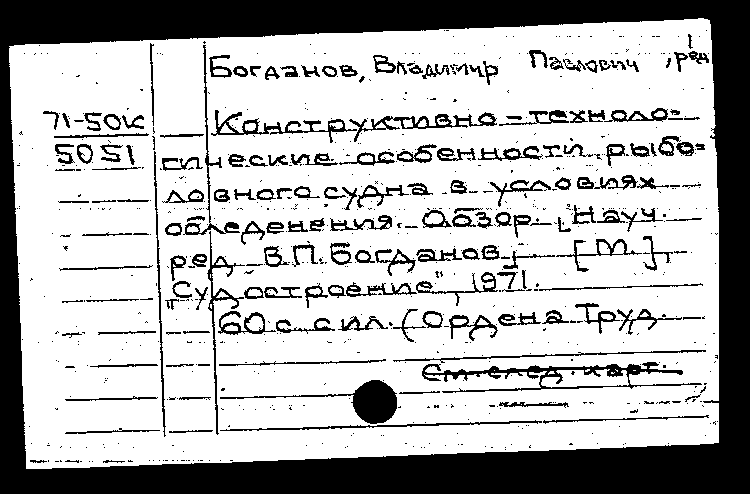 Богданов, Владимир Павлович, ред
71-50К Конструктивно-техноло=
5051 гические особенности рыбо=
ловного судна в условиях
обледенения. Обзор. [Науч.
ред. В.П. Богданов]. [М.],
"Судостроение", 1971.
60 с. с ил. (Ордена Труд.
См. след. карт.